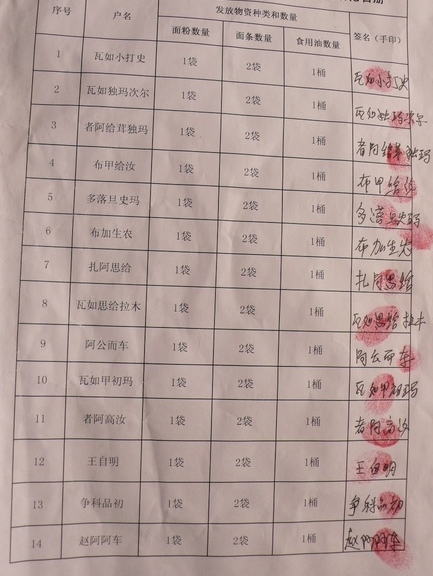 序号 户名 发放物资种类和数量 签名（手印）
面粉数量 面条数量 食用油数量
1 瓦如小打史 1袋 2袋 1桶 瓦如小打史
2 瓦如独玛次尔 1袋 2袋 1桶 瓦如独玛次尔
3 者阿给茸独玛 1袋 2袋 1桶 者阿给茸独玛
4 布甲给汝 1袋 2袋 1桶 布甲给汝
5 多落旦史玛 1袋 2袋 1桶 多落旦史玛
6 布加生农 1袋 2袋 1桶 布加生农
7 扎阿思给 1袋 2袋 1桶 扎阿思给
8 瓦如思给拉木 1袋 2袋 1桶 瓦如思给拉木
9 阿公而车 1袋 2袋 1桶 阿公而车
10 瓦如甲初玛 1袋 2袋 1桶 瓦如甲初玛
11 者阿高汝 1袋 2袋 1桶 者阿高汝
12 王自明 1袋 2袋 1桶 王自明
13 争科品初 1袋 2袋 1桶 争科品初
14 赵阿阿车 1袋 2袋 1桶 赵阿阿车